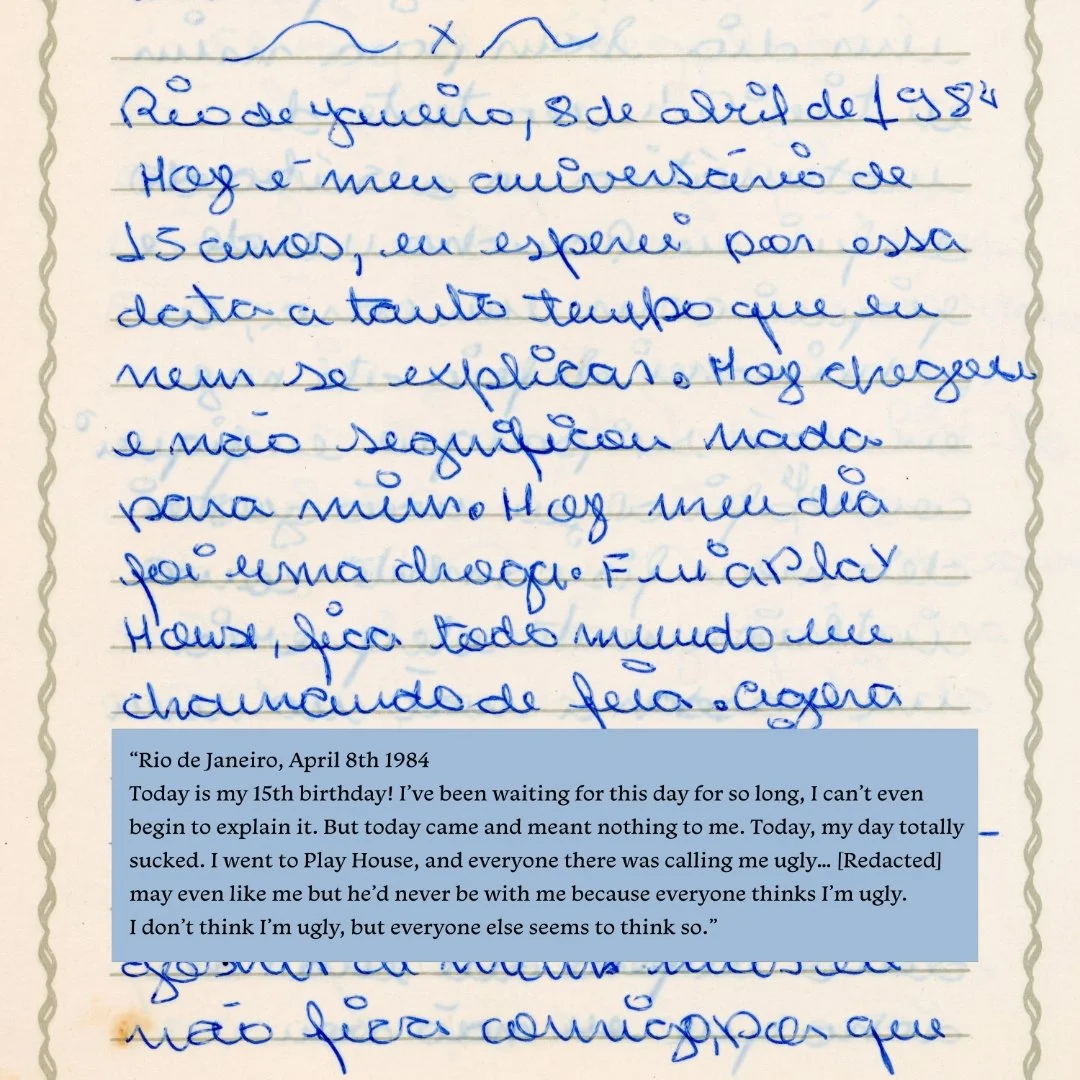 x
Rio de Janeiro, 8 de abril de 1984
Hoy é meu aniversário de
15 anos, eu esperei por essa
data a tanto tempo que eu
nem se explicar. Hoy chegou
e não segnificou nada
para mim. Hoy meu dia
foi uma droga. Fui a Play
House, fica todo mundo me
chamando de feia. Agora
“Rio de Janeiro, April 8th 1984
Today is my 15th birthday! I’ve been waiting for this day for so long, I can’t even
begin to explain it. But today came and meant nothing to me. Today, my day totally
sucked. I went to Play House, and everyone there was calling me ugly... [Redacted]
may even like me but he’d never be with me because everyone thinks I’m ugly.
I don’t think I’m ugly, but everyone else seems to think so.”
não fica comigo, por que